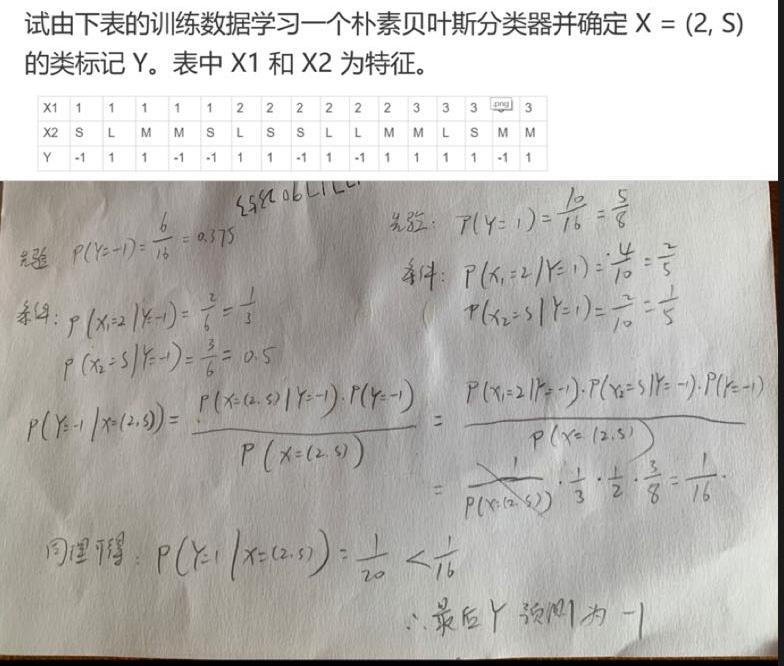 试由下表的训练数据学习一个朴素贝叶斯分类器并确定 X = (2, S)
的类标记 Y。表中 X1 和 X2 为特征。
X1 1 1 1 1 1 2 2 2 2 2 2 3 3 3 .png 3
X2 S L M M S L S S L L M M L S M M
Y -1 1 1 -1 -1 1 1 -1 1 -1 1 1 1 1 -1 1
先验 P(Y=-1)= 6/16 = 0.375
先验: P(Y=1)= 10/16 = 5/8
条件: P(X₁=2|Y=-1)= 2/6 = 1/3
条件: P(X₁=2|Y=1)= 4/10 = 2/5
P(X₂=S|Y=-1)= 3/6 = 0.5
P(X₂=S|Y=1)= 2/10 = 1/5
P(Y=-1|X=(2.S))= P(X=(2.S)|Y=-1).P(Y=-1) / P(X=(2.S)) = P(X₁=2|Y=-1).P(X₂=S|Y=-1).P(Y=-1) / P(X=(2.S))
= 1/P(X=(2.S)) · 1/3 · 1/2 · 3/8 = 1/16.
同理可得: P(Y=1|X=(2.S)) = 1/20 < 1/16
∴最后Y预测为 -1